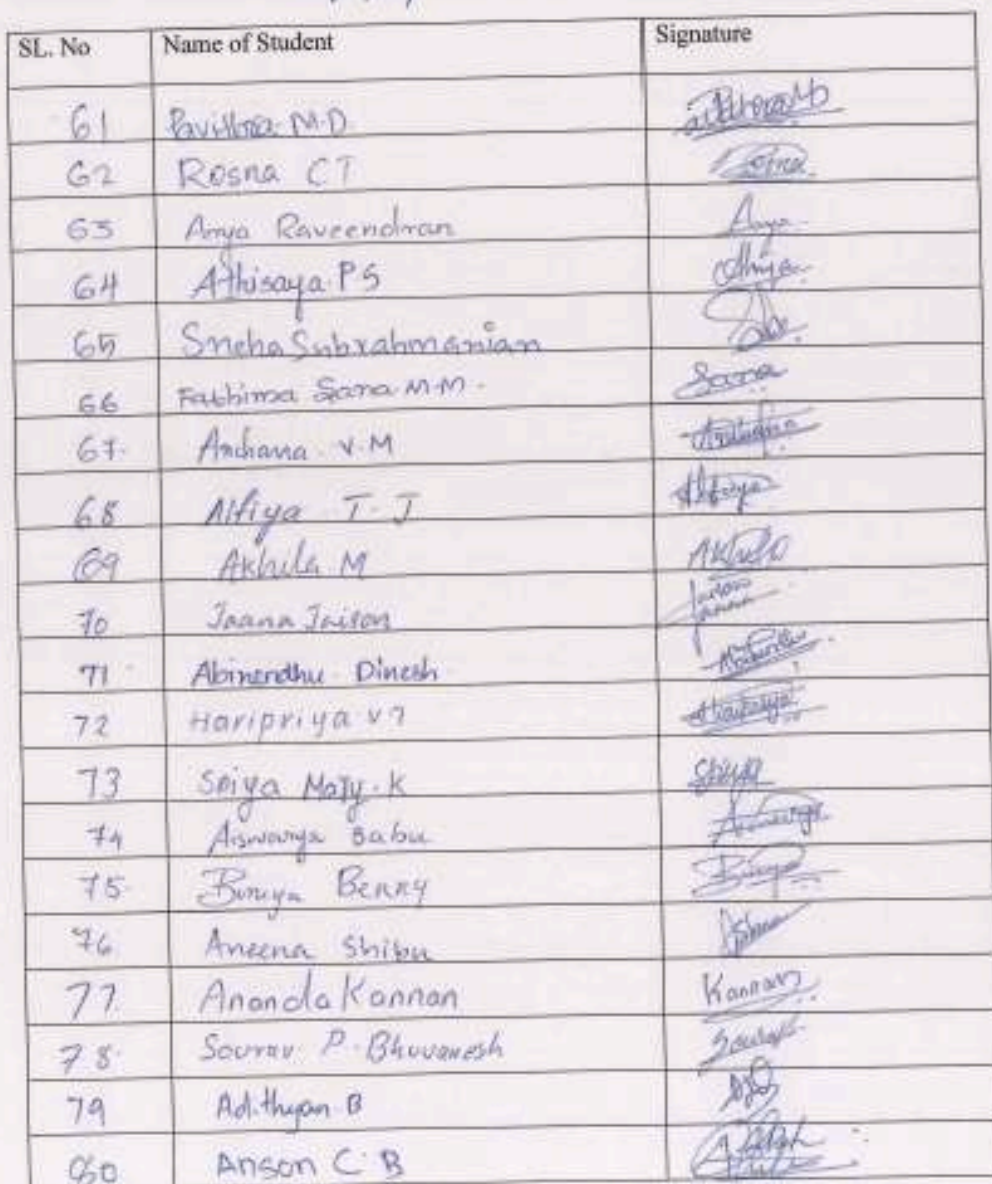 SL. No Name of Student Signature
61 Pavithra M.D
62 Rosna C T Rosna
63 Arya Raveendran Arya
64 Athisaya P S Athisaya
65 Sneha Subrahmanian
66 Fathima Sana M.M. Sana
67. Archana V.M Archana
68 Alfiya T. J Alfiya
69 Akhila M Akhila
70 Jaana Jaison Jaison Jaana
71 Abinendhu Dinesh
72 Haripriya V 7 Haripriya
73 Sriya Mary. K Sriya
74 Aiswarya Babu Aiswarya
75 Binuya Benny Binuya
76. Aneena Shibu
77. Ananda Kannan Kannan
78. Sourav P. Bhuvanesh Sourav
79 Adithyan B
80 Anson C B